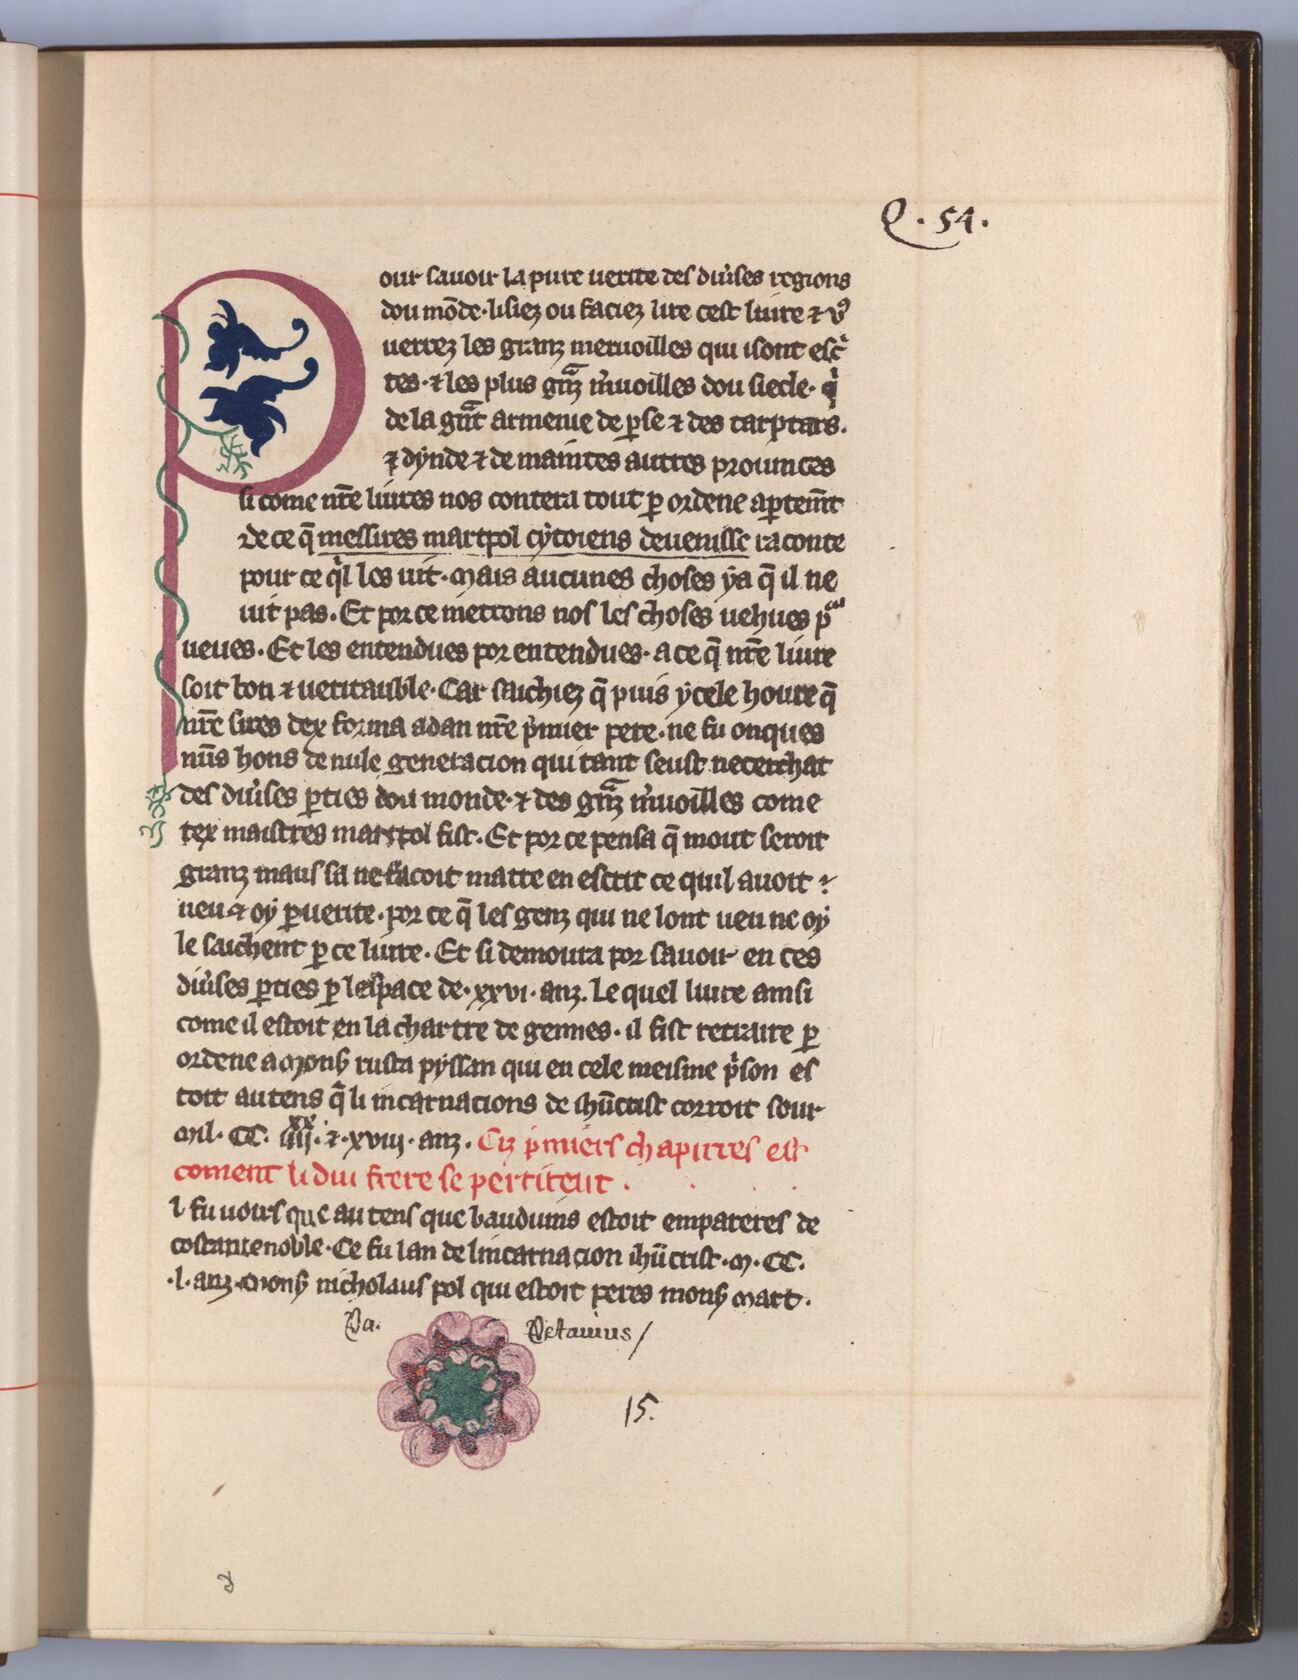 Q. 54.
Pour sauoir la pure uerite des diu'ses regions
dou mõde. lisiez ou faciez lire cest liure ⁊ vꝰ
uerrez les granz meruoilles qui i sont esc'
tes. ⁊ les plus gᵃnz m'uoilles dou siecle. q'
de la gᵃnt armenie de ꝑse ⁊ des tarptars.
⁊ dÿnde ⁊ de maintes autres prouinces
si come nr̃e liures nos contera tout ꝑ ordene aꝑtem̃t
⁊ de ce q̃ messires marcpol cÿtoiens de uenisse raconte
pour ce q'l les uit. Mais aucunes choses ÿ a q̃ il ne
uit pas. Et por ce mettons nos les choses uehues pᵒʳ
ueues. Et les entendues por entendues. a ce q̃ nr̃e liure
soit bon ⁊ ueritauble. Car saichiez q̃ puis ÿcele houre q̃
nr̃e sires dex forma adan nr̃e p'mier pere. ne fu onques
nus hons de nule generacion qui tant seust ne cerchat
des diu'ses ꝑties dou monde. ⁊ des gᵃnz m'uoilles come
cex maistres marcpol fist. Et por ce pensa q̃ mout seroit
granz maus sa ne facoit mattre en escrit ce quil auoit
ueu ⁊ oÿ ꝑ uerite. por ce q̃ les genz qui ne lont ueu ne oÿ
le saichent ꝑ ce liure. Et si demoura por sauoir en ces
diu'ses ꝑties ꝑ lespace de. xxvi. anz. Le quel liure ainsi
come il estoit en la chartre de gennes. il fist retraire ꝑ
ordene a Mons' rusta pÿssan qui en cele meisme p'son es
toit au tens q̃ li incarnacions de ih̃ucrist corroit sour
Mil. CC. iiijˣˣ. ⁊. xviij. anz. Ciz p'miers chapitres est
coment li dui frere se pertirent.
l fu uoirs que au tens que bauduins estoit empareres de
costantenoble. Ce fu lan de lincarnacion ih̃ucrist. M. CC.
.l. anz. Mons' nicholaus pol qui estoit peres mons' Marc.
Pa. Petauius/
15.